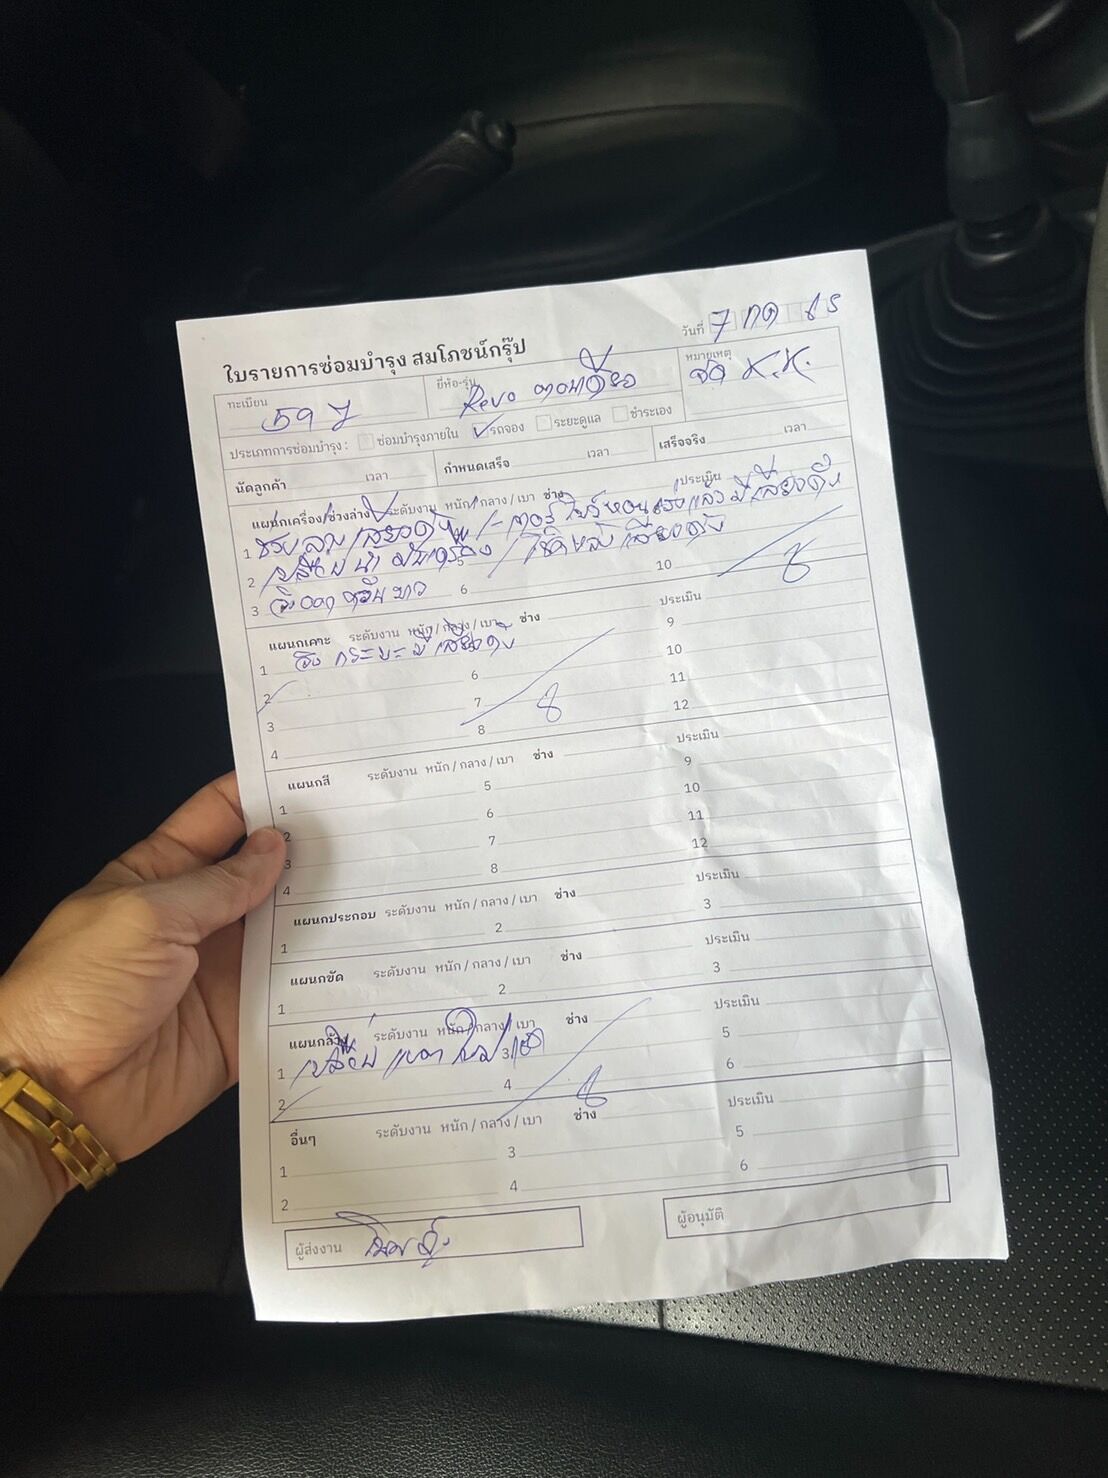 ใบรายการซ่อมบำรุง สมโภชน์กรุ๊ป
วันที่ 7 กค 65
ทะเบียน
ยี่ห้อ-รุ่น Revo ตอนเดียว
หมายเหตุ จัด K.K.
ประเภทการซ่อมบำรุง : ซ่อมบำรุงภายใน รถจอง ระยะดูแล ชำระเอง
นัดลูกค้า เวลา กำหนดเสร็จ เวลา เสร็จจริง เวลา
แผนกเครื่อง/ช่วงล่าง ระดับงาน หนัก/กลาง/เบา ช่าง ประเมิน
1 ช่วงล่าง เสียงดัง มีเสียงดัง
2 เสียงดัง 10
3 6
แผนกเคาะ ระดับงาน หนัก/กลาง/เบา ช่าง ประเมิน
1 กระบะ มีเสียงดัง 9
2 6 10
3 7 11
4 8 12
แผนกสี ระดับงาน หนัก/กลาง/เบา ช่าง ประเมิน
1 5 9
2 6 10
3 7 11
4 8 12
แผนกประกอบ ระดับงาน หนัก/กลาง/เบา ช่าง ประเมิน
1 2 3
แผนกขัด ระดับงาน หนัก/กลาง/เบา ช่าง ประเมิน
1 2 3
แผนกล้าง ระดับงาน หนัก/กลาง/เบา ช่าง ประเมิน
1 เปลี่ยน 3 5
2 4 6
อื่นๆ ระดับงาน หนัก/กลาง/เบา ช่าง ประเมิน
1 3 5
2 4 6
ผู้ส่งงาน
ผู้อนุมัติ